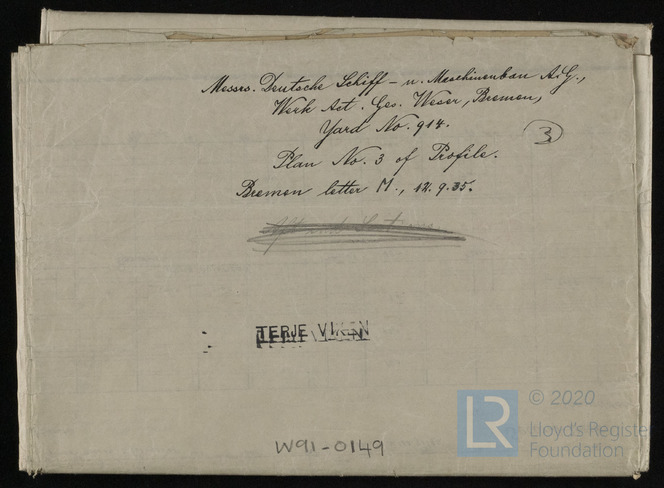 Messrs. Deutsche Schiff - u. Maschinenbau A.G.,
Werk Act. Ges. Weser, Bremen,
Yard No. 914.
3
Plan No. 3 of Profile.
Bremen letter M., 12.9.35.
TERJE VIKEN
W91-0149
LR
© 2020
Lloyd's Registe
Foundation